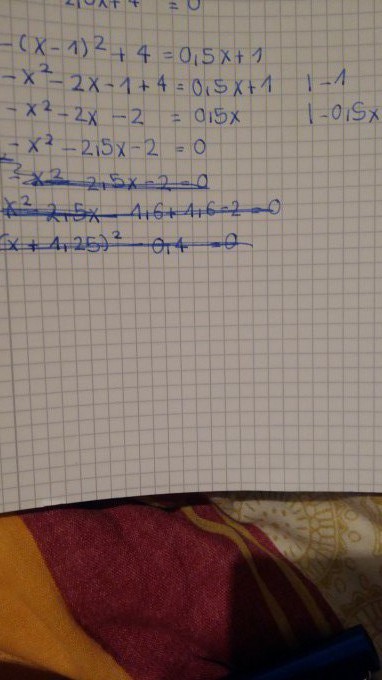 2,0x+4 = 0
-(x-1)² + 4 = 0,5x+1
-x² - 2x - 1 + 4 = 0,5x+1 |-1
-x² - 2x - 2 = 0,5x |-0,5x
-x² - 2,5x - 2 = 0
-x² 2,5x - 2 = 0
x² 2,5x 1,6+1,6-2 = 0
(x + 1,25)² 0,4 = 0